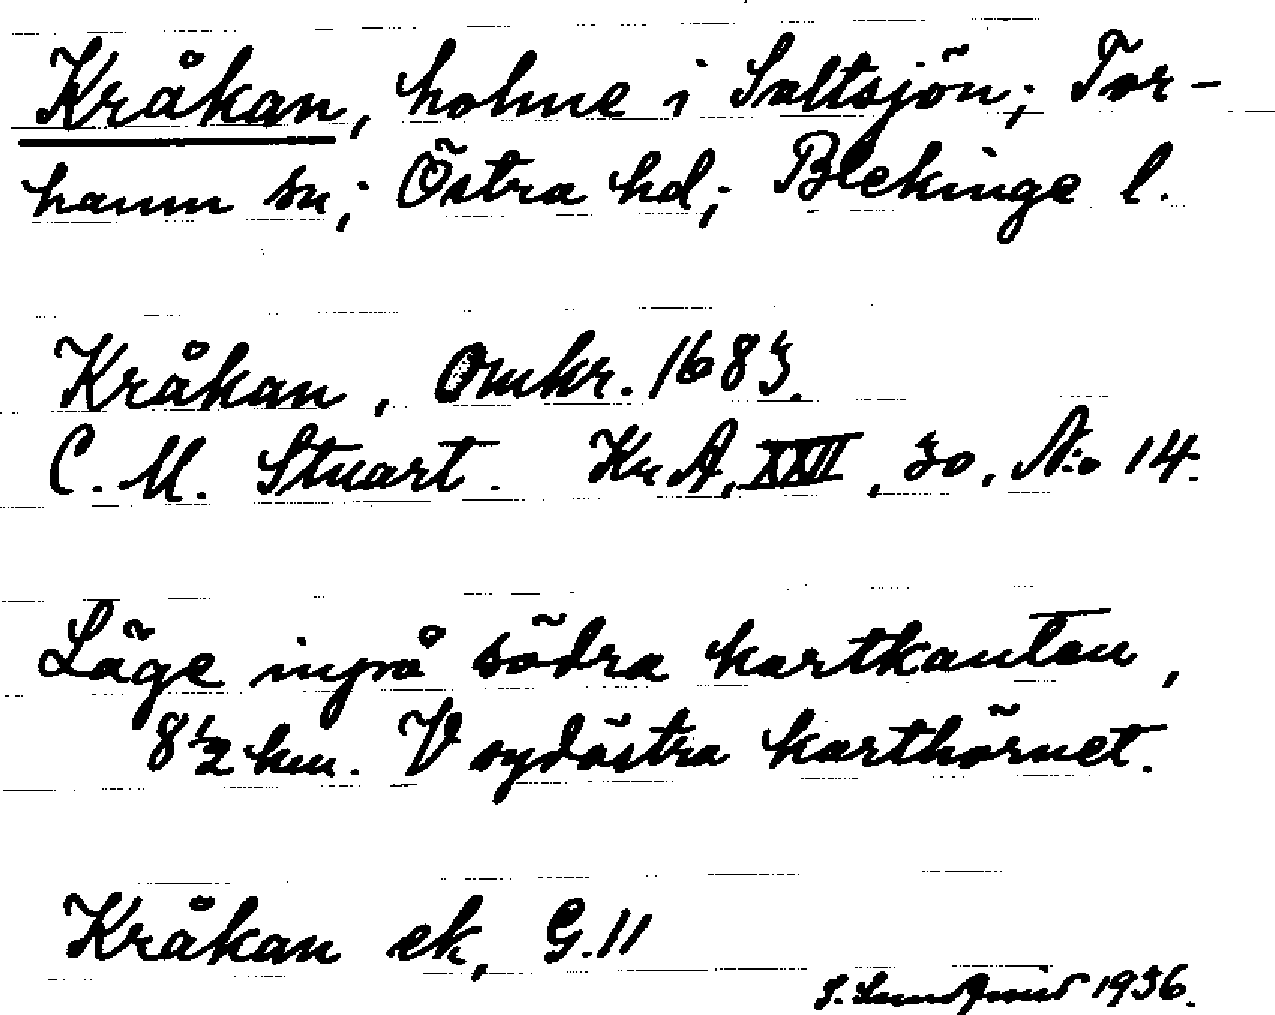 Kråkan, holme i Saltsjön; Tor-
hamn sn; Östra hd; Blekinge l.
Kråkan, Omkr. 1683.
C. M. Stuart. Kr A, XXII, 30, No 14.
Läge inpå södra kartkanten,
8 1/2 km. V sydöstra karthörnet.
Kråkan ek, G. 11
1936.